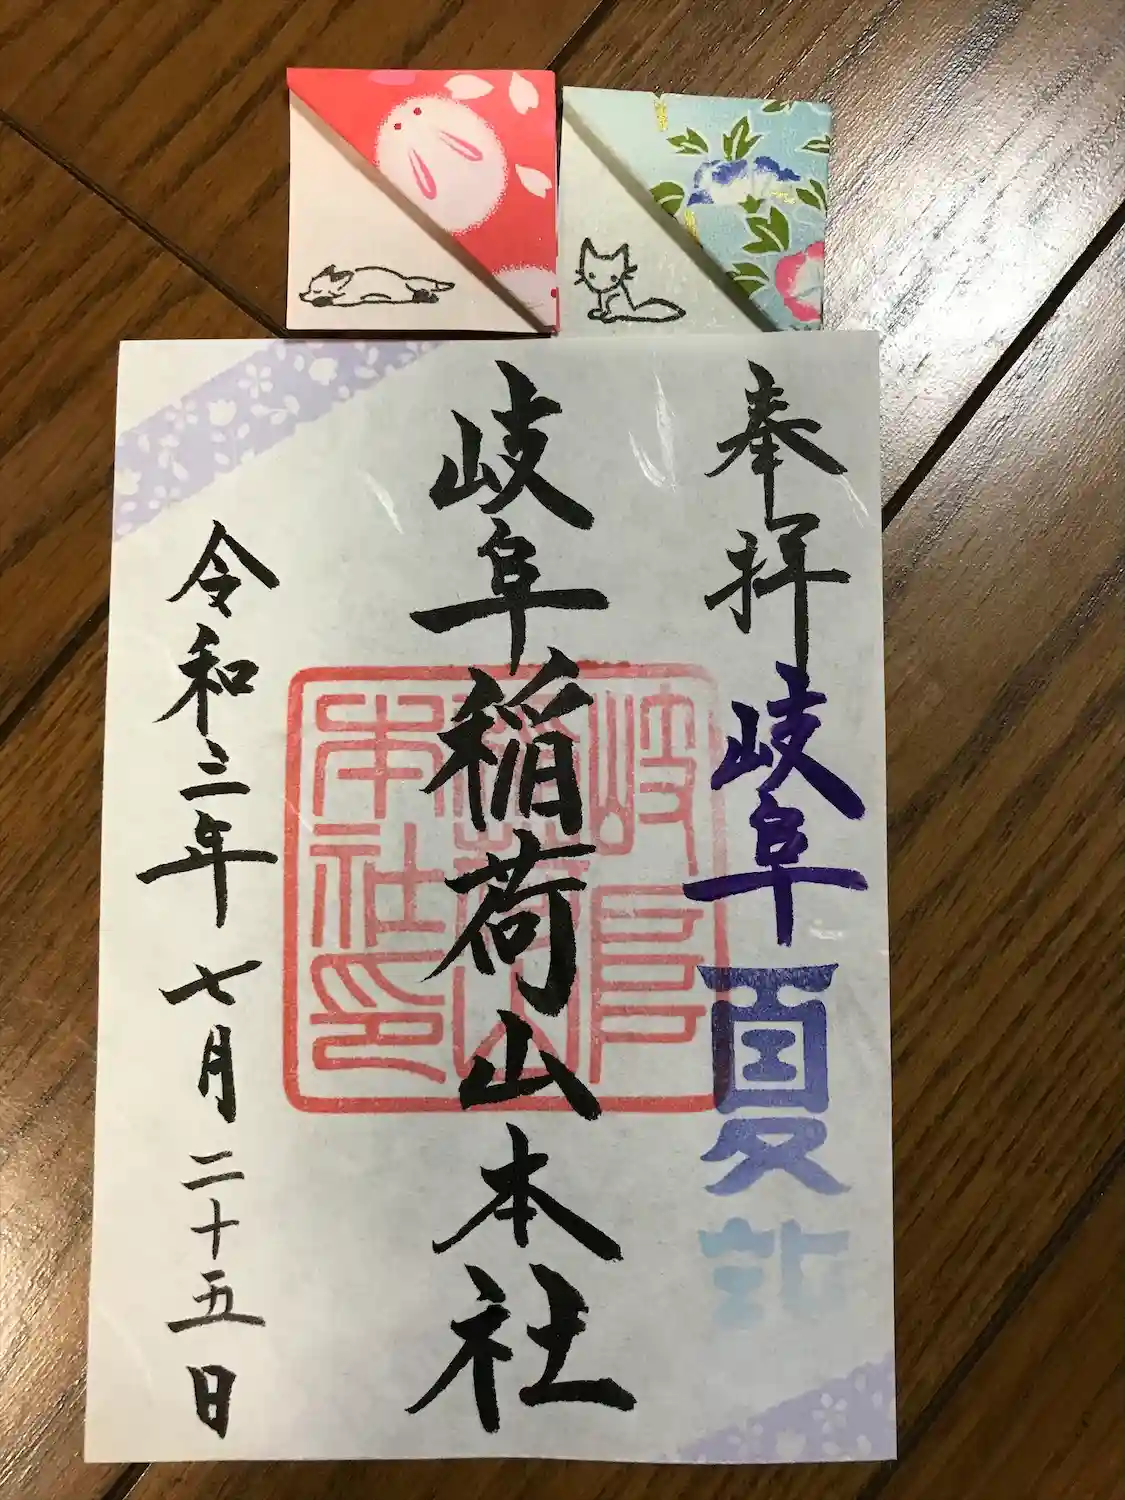 奉拝
岐阜夏詣
岐阜稲荷山本社
岐阜稲荷山本社印
令和三年七月二十五日